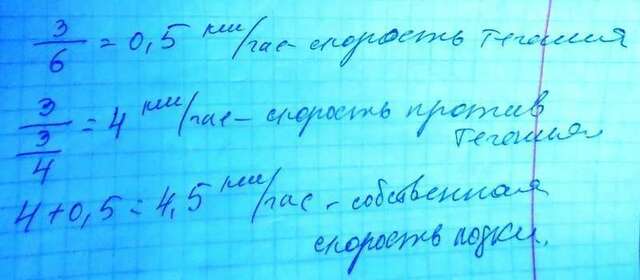 3/6 = 0,5 км/час - скорость течения
3/(3/4) = 4 км/час - скорость против
течения
4 + 0,5 = 4,5 км/час - собственная
скорость лодки.